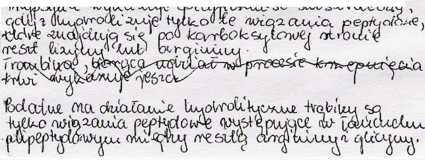 gdyż hydrolizuje tylko te wiązania peptydowe,
które znajdują się po karboksylowej stronie
reszt lizyny lub argininy.
Trombina, biorąca udział w procesie krzepnięcia
krwi wykazuje jeszcze
Podatne na działanie hydrolityczne trąbiny są
tylko wiązania peptydowe występujące w łańcuchu
polipeptydowym między resztą argininy i glicyny.